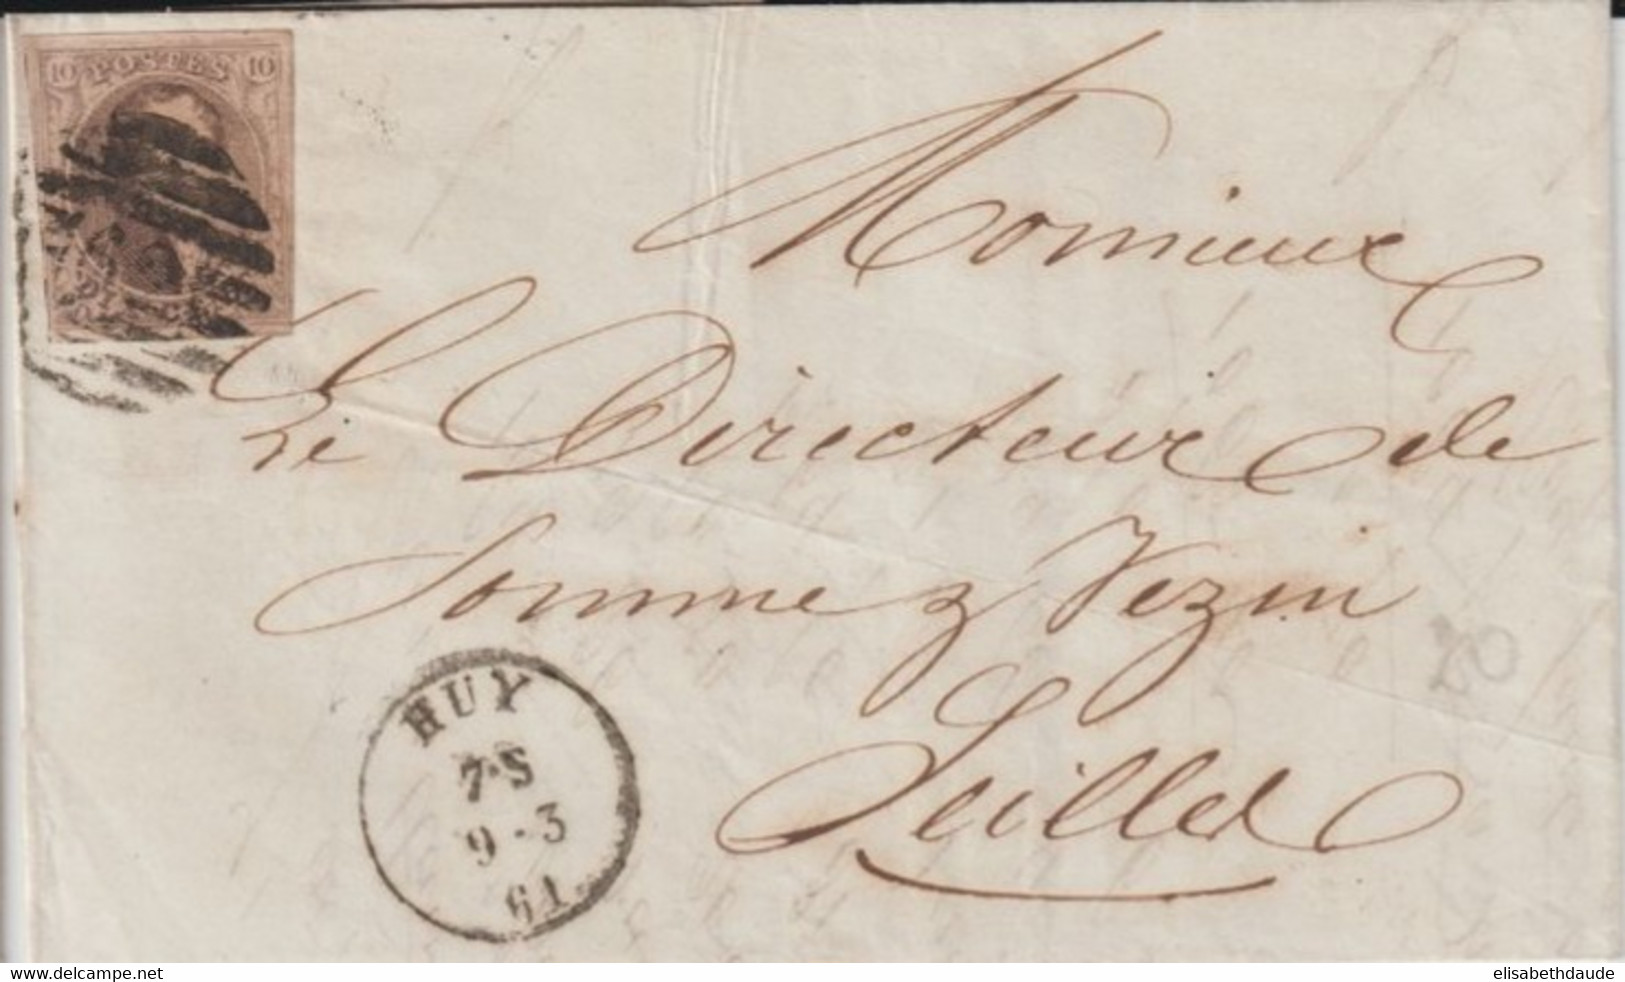 10 POSTES 10
Monsieur
Le Directeur de
Somme & Vezin
Seilles
HUY
7·S
9-3
61
20
www.delcampe.net
elisabethdaude